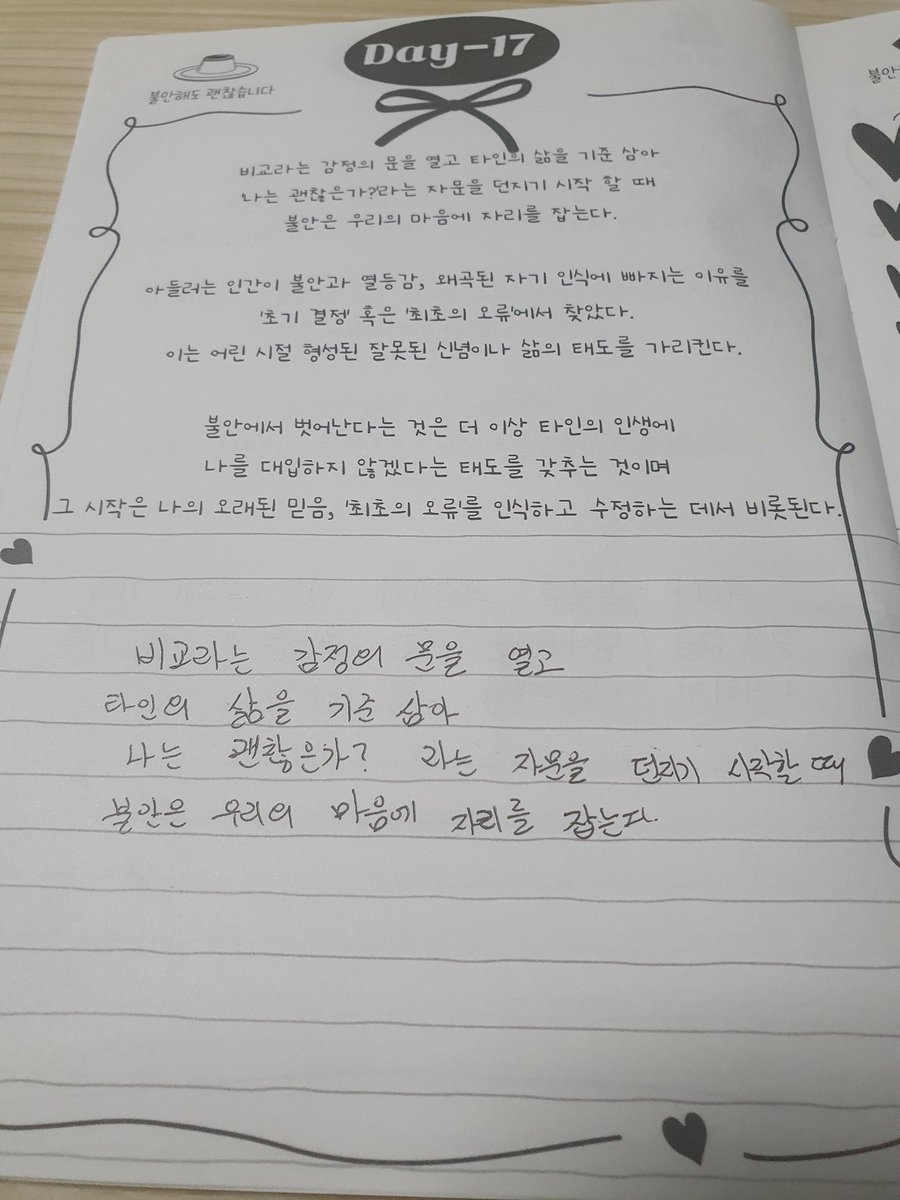 Day-17
불안해도 괜찮습니다
불안
비교라는 감정의 문을 열고 타인의 삶을 기준 삼아
나는 괜찮은가?라는 자문을 던지기 시작 할 때
불안은 우리의 마음에 자리를 잡는다.
아들러는 인간이 불안과 열등감, 왜곡된 자기 인식에 빠지는 이유를
'초기 결정' 혹은 '최초의 오류'에서 찾았다.
이는 어린 시절 형성된 잘못된 신념이나 삶의 태도를 가리킨다.
불안에서 벗어난다는 것은 더 이상 타인의 인생에
나를 대입하지 않겠다는 태도를 갖추는 것이며
그 시작은 나의 오래된 믿음, '최초의 오류'를 인식하고 수정하는 데서 비롯된다.
비교라는 감정의 문을 열고
타인의 삶을 기준 삼아
나는 괜찮은가? 라는 자문을 던지기 시작할 때
불안은 우리의 마음에 자리를 잡는다.